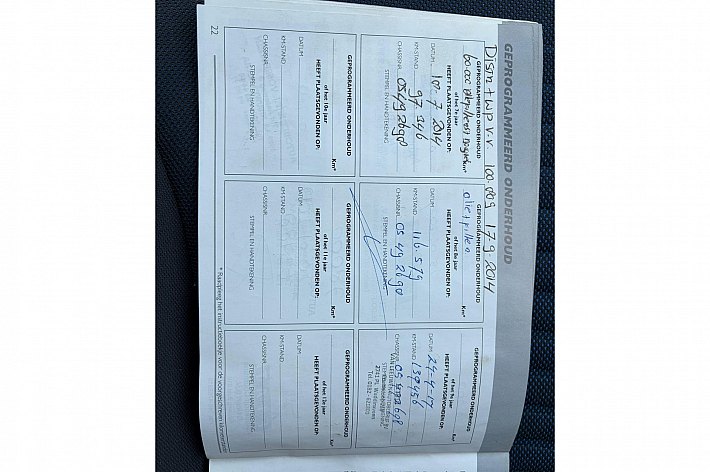 GEPROGRAMMEERD ONDERHOUD
Distr + WP v.v 100.809 17-9-2014
GEPROGRAMMEERD ONDERHOUD
60.000 Km*
of het 7e jaar
HEEFT PLAATSGEVONDEN OP:
DATUM 10-7 2014
KM-STAND 97 346
CHASSISNR. 05492690
STEMPEL EN HANDTEKENING
GEPROGRAMMEERD ONDERHOUD
olie + filter
of het 8e jaar
HEEFT PLAATSGEVONDEN OP:
DATUM
KM-STAND 116 579
CHASSISNR. 05 492690
STEMPEL EN HANDTEKENING
GEPROGRAMMEERD ONDERHOUD
Km*
of het 9e jaar
HEEFT PLAATSGEVONDEN OP:
DATUM 24-4-17
KM-STAND 139456
CHASSISNR.
STEMPEL EN HANDTEKENING
GEPROGRAMMEERD ONDERHOUD
Km*
of het 10e jaar
HEEFT PLAATSGEVONDEN OP:
DATUM
KM-STAND
CHASSISNR.
STEMPEL EN HANDTEKENING
GEPROGRAMMEERD ONDERHOUD
Km*
of het 11e jaar
HEEFT PLAATSGEVONDEN OP:
DATUM
KM-STAND
CHASSISNR.
STEMPEL EN HANDTEKENING
GEPROGRAMMEERD ONDERHOUD
Km*
of het 12e jaar
HEEFT PLAATSGEVONDEN OP:
DATUM
KM-STAND
CHASSISNR.
STEMPEL EN HANDTEKENING
22
* Raadpleeg het instructieboekje voor de voorgeschreven kilometerstand